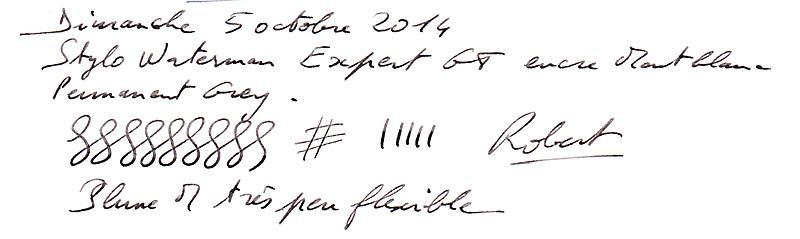 Dimanche 5 octobre 2014
Stylo Waterman Expert GT encre Montblanc
Permanent Grey.
# Robert
Plume M très peu flexible